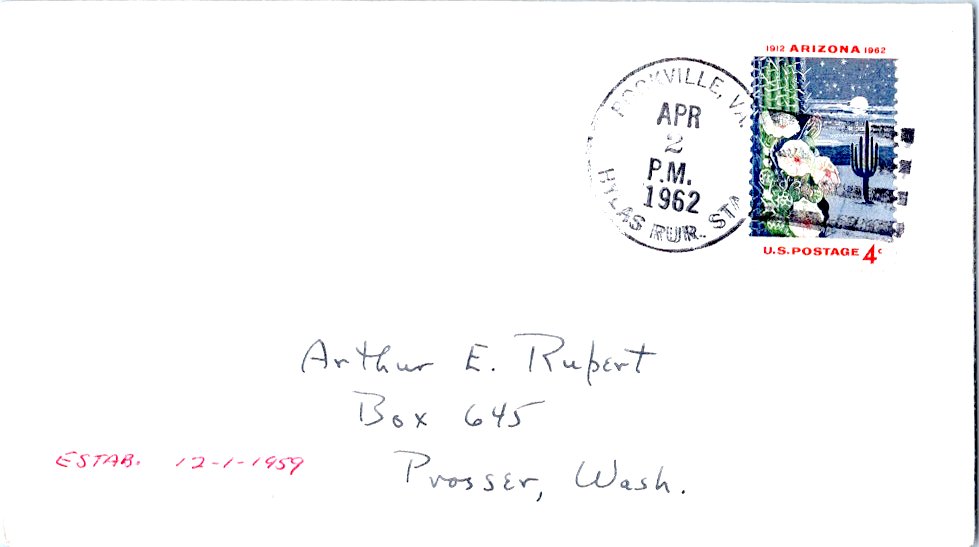 1912 ARIZONA 1962
ROCKVILLE, VA.
APR
2
P.M.
1962
HYLAS RUR. STA
U.S. POSTAGE 4¢
Arthur E. Rupert
Box 645
Prosser, Wash.
ESTAB. 12-1-1959